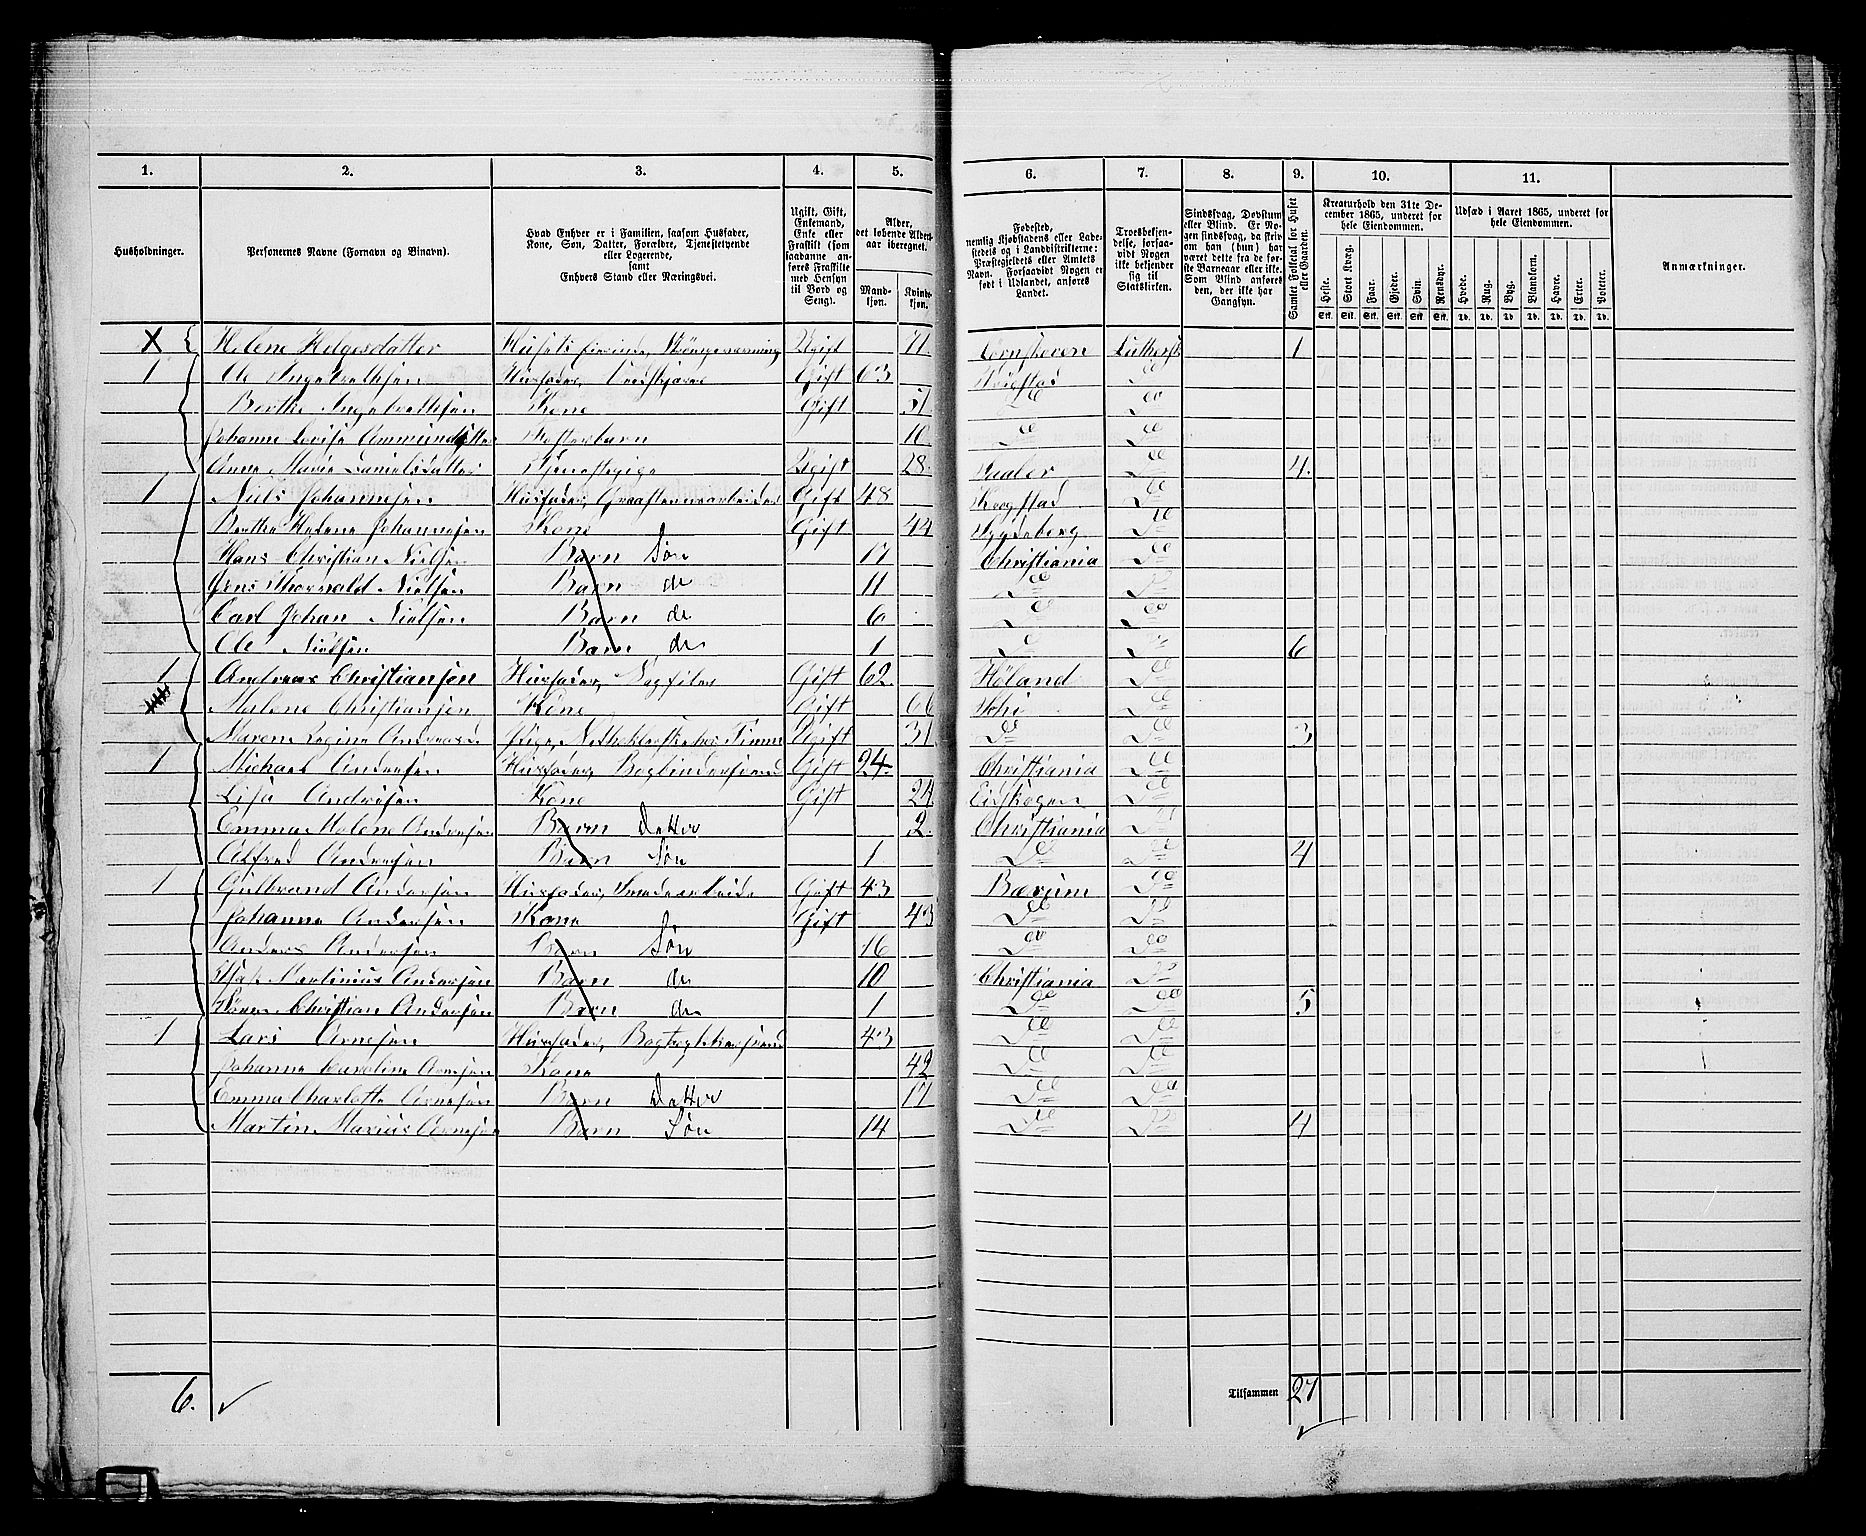 1. 2. 3. 4. 5. 6. 7. 8. 9. 10. 11.
Husholdninger.
Personernes Navne (Fornavn og Binavn).
Hvad Enhver er i Familien, saasom Husfader,
Kone, Søn, Datter, Forældre, Tjenestetyende
eller Logerende,
samt
Enhvers Stand eller Næringsvei.
Ugift, Gift,
Enkemand,
Enke eller
Fraskilt (som
saadanne an-
føres Fraskilte
med Hensyn
til Bord og
Seng).
Alder,
det løbende Alders-
aar iberegnet.
Mand-
kjøn.
Kvinde-
kjøn.
Fødested,
nemlig Kjøbstadens eller Lade-
stedets og i Landdistrikterne:
Præstegjeldets eller Amtets
Navn. Forsaavidt Nogen er
født i Udlandet, anføres
Landet.
Troesbekjen-
delse, forsaa-
vidt Nogen
ikke bekjender
sig til
Statskirken.
Sindssvag, Døvstum
eller Blind. Er No-
gen sindssvag, da skriv
om han (hun) har
været dette fra de før-
ste Barneaar eller ikke.
Som Blind anføres
den, der ikke har
Gangsyn.
Samlet Folketal for Huset
eller Gaarden.
Kreaturhold den 31te De-
cember 1865, underet for
hele Eiendommen.
Heste. Stort Kvæg. Faar. Gjeder. Svin. Rensdyr.
Stk. Stk. Stk. Stk. Stk. Stk.
Udsæd i Aaret 1865, underet for
hele Eiendommen.
Hvede. Rug. Byg. Blandkorn. Havre. Erter. Poteter.
Td. Td. Td. Td. Td. Td. Td.
Anmærkninger.
X Helene Helgesdatter Husets Eierinde, Ugift 71. Luthersk 1
1 Ole Ingebrethsen Husfader, Gift 63 Trøgstad Do
Berthe Ingebrethsen Kone Gift 51 Do Do
Johanne Lovise Ammundsdatter Fosterbarn 10. Do Do
Anne Marie Danielsdatter Tjenestepige Ugift 28. Vaaler Do 4.
1 Niels Johannesen Husfader, Gift 48 Krogstad Do
Berthe Helene Johannesen Kone Gift 44 Spydeberg Do
Hans Christian Nielsen Barn Søn 17 Christiania Do
Jens Thorvald Nielsen Barn do 11 Do Do
Carl Johan Nielsen Barn do 6 Do Do
Ole Nielsen Barn do 1 Do Do 6
1 Andreas Christiansen Husfader, Sagfiler Gift 62. Høland Do
Malene Christiansen Kone Gift 66 Ski Do
Maren Regine Andreasd. Pige, Ugift 31 Do Do 3
1 Michael Andersen Husfader, Bogbindersvend Gift 24. Christiania Do
Lisa Andersen Kone Gift 24 Eidskogen Do
Emma Malene Andersen Barn Datter 2. Christiania Do
Alfred Andersen Barn Søn 1 Do Do 4
1 Gulbrand Andersen Husfader, Smedearbeide Gift 43 Bærum Do
Johanne Andersen Kone Gift 43 Do Do
Anders Andersen Barn Søn 16 Do Do
Martinius Andersen Barn do 10 Christiania Do
Christian Andersen Barn do 1 Do Do 5
1 Lars Arnesen Husfader, 43 Do Do
Johanne Caroline Arnesen Kone 42 Do Do
Emma Charlotte Arnesen Barn Datter 17 Do Do
Martin Marius Arnesen Barn Søn 14 Do Do 4
6. Tilsammen 27